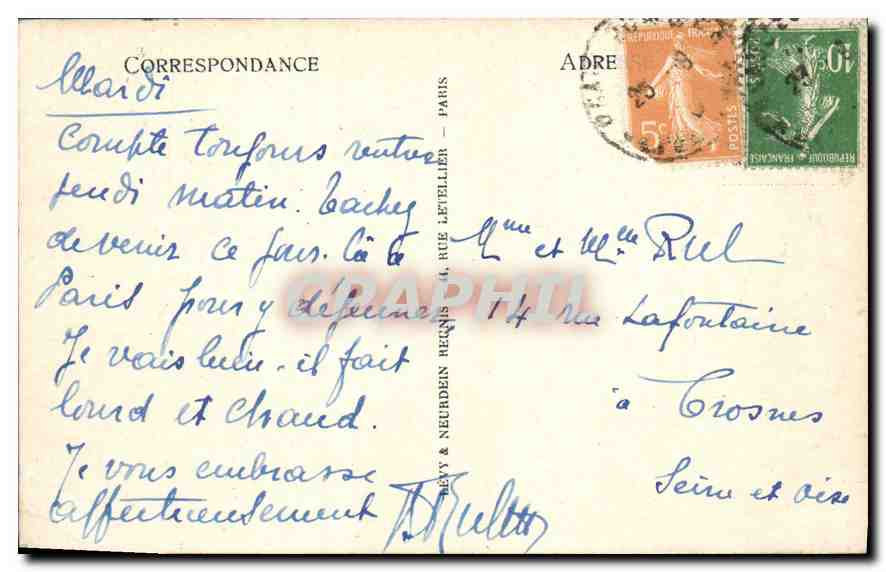 CORRESPONDANCE
Mardi
Compte toujours rentrer
jeudi matin. Tachez
de venir ce jour-là à
Paris pour y déjeuner.
Je vais bien - il fait
lourd et chaud.
Je vous embrasse
affectueusement
LÉVY & NEURDEIN RÉUNIS, 44, RUE LETELLIER — PARIS
ADRE
RÉPUBLIQUE FRANÇAISE
5c
POSTES
10c
RÉPUBLIQUE FRANÇAISE
Mme et Melle Ruel
14 rue Lafontaine
à Crosnes
Seine et Oise
CPAPHIL